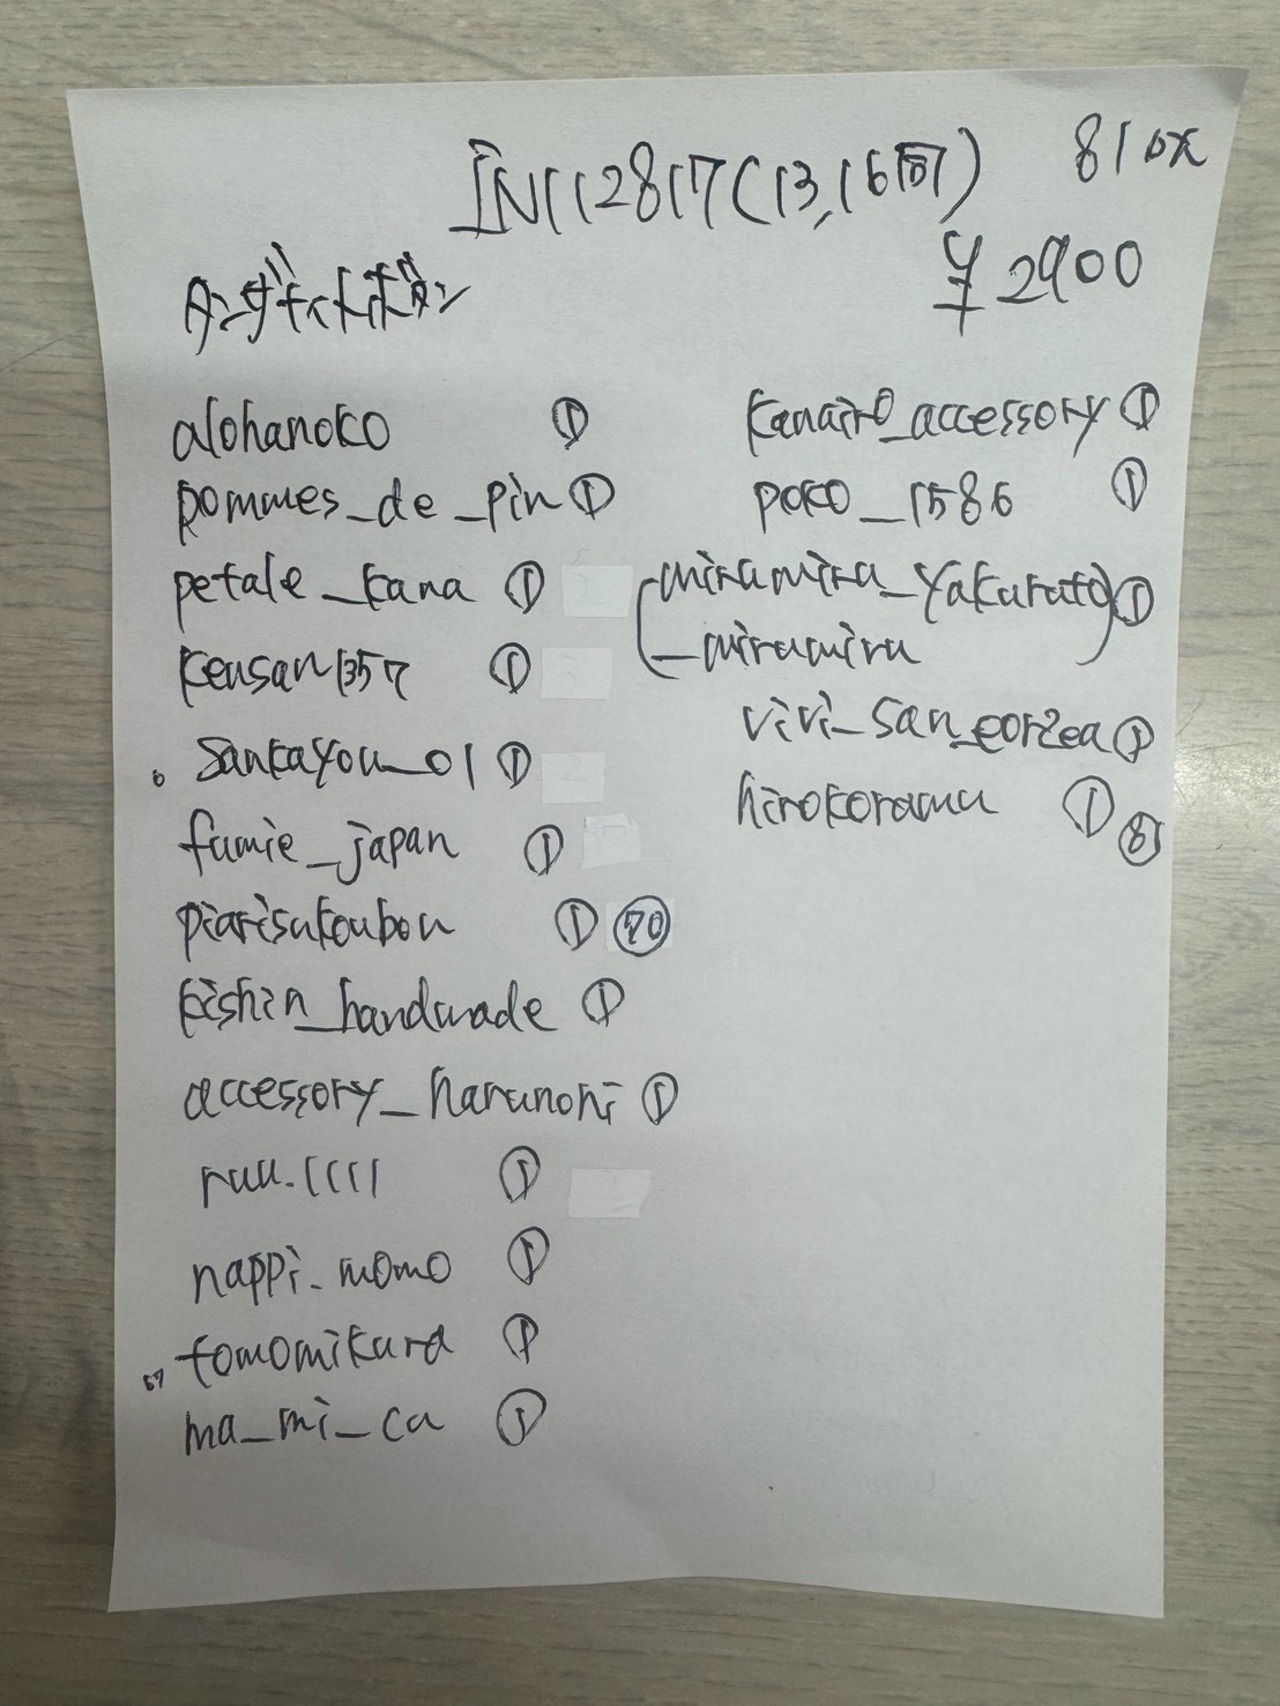 IN112817(13,16時) 81px
¥2900
タンザナイトボタン
alohanoko ①
pommes_de_pin ①
petale_kana ①
kensan1357 ①
sankayou_01 ①
fumie_japan ①
piarisukoubou ① ⑦⓪
kishin_handmade ①
accessory_harunohi ①
ruu.1111 ①
nappi_momo ①
tomomikura ①
67
ma_mi_ca ①
kanairo_accessory ①
poko_1586 ①
(miramira_yakurato) ①
_miramira
vivi_san_eorzea ①
hirokoramu ① ⑧